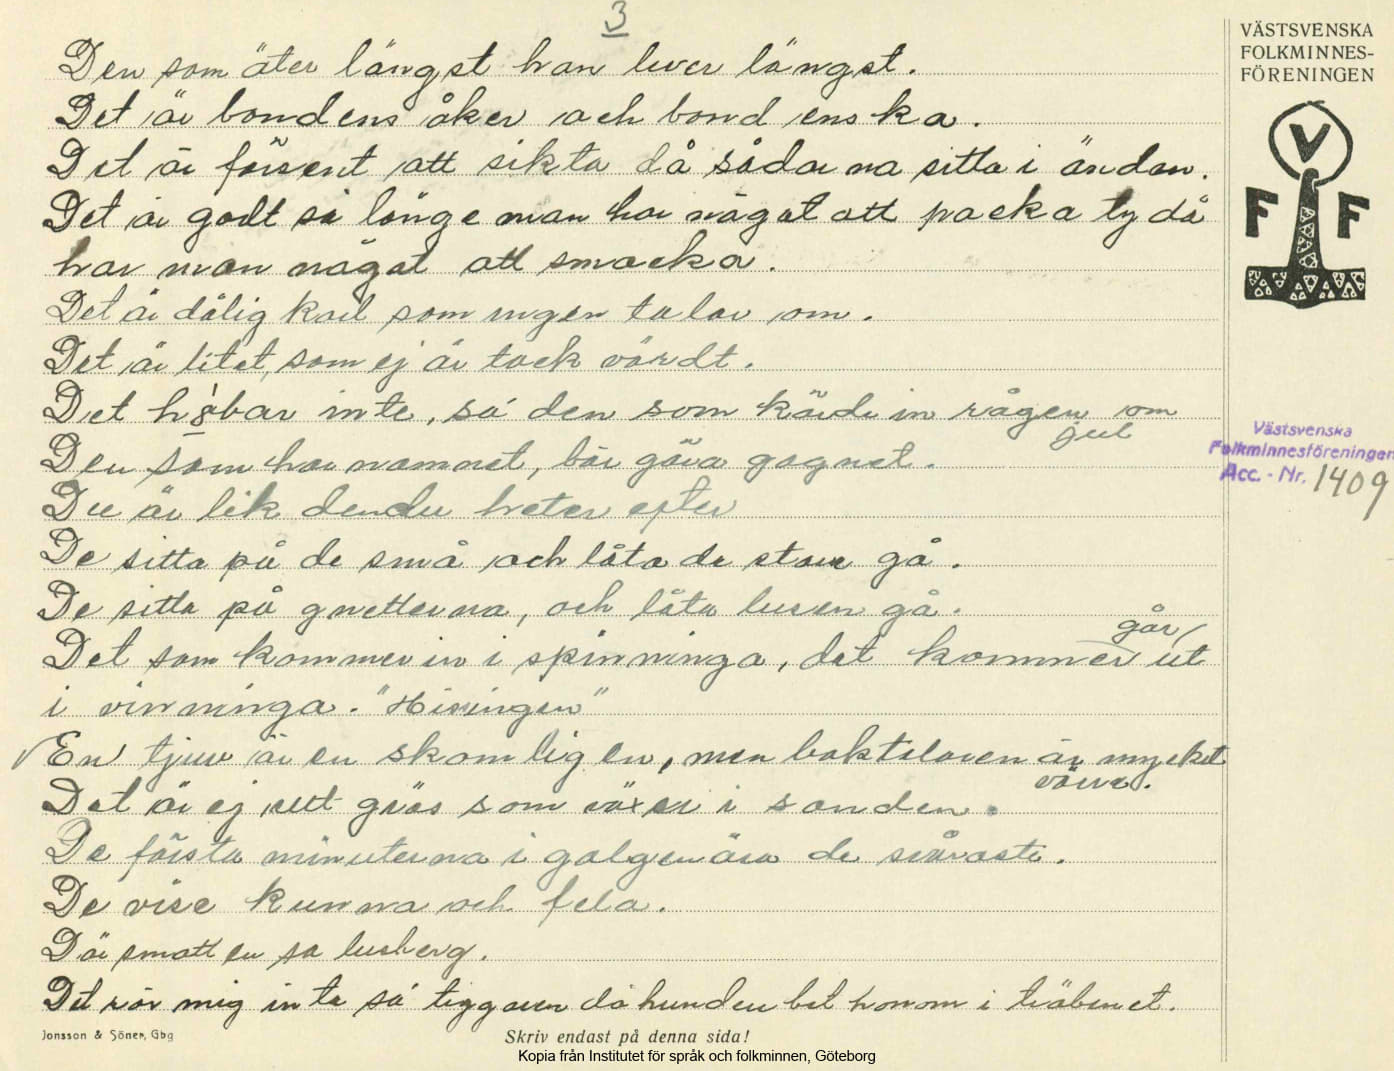 3
VÄSTSVENSKA
FOLKMINNES-
FÖRENINGEN
V
F F
Den som äter längst han lever längst.
Det är bondens åker och bond enska.
Det är försent att sikta då sådarna sitta i ändan.
Det är godt så länge man har något att packa ty då
har man något att smacka.
Det är dålig karl som ingen talar om.
Det är litet, som ej är tack värdt.
Det håbar inte, sa den som körde in rågen om
jul
Den som har namnet, bör göra gagnet.
Du är lik dendu heter efter
De sitta på de små och låta de store gå.
De sitta på gnetterna, och låta lusen gå.
går
Det som kommer in i spinninga, det kommer ut
i vinninga. "Hisingen"
En tjuv är en skamlig en, men baktalaren är mycket
värre.
Det är ej rett gräs som växer i sanden.
De första minuterna i galgen ära de svåraste.
De vise kunna och fela.
Där smatt en sa lusberg.
Det rör mig inte sa tiggaren då hunden bet honom i träbenet.
Västsvenska
Folkminnesföreningen
Acc. - Nr. 1409
Jonsson & Söner, Gbg
Skriv endast på denna sida!
Kopia från Institutet för språk och folkminnen, Göteborg